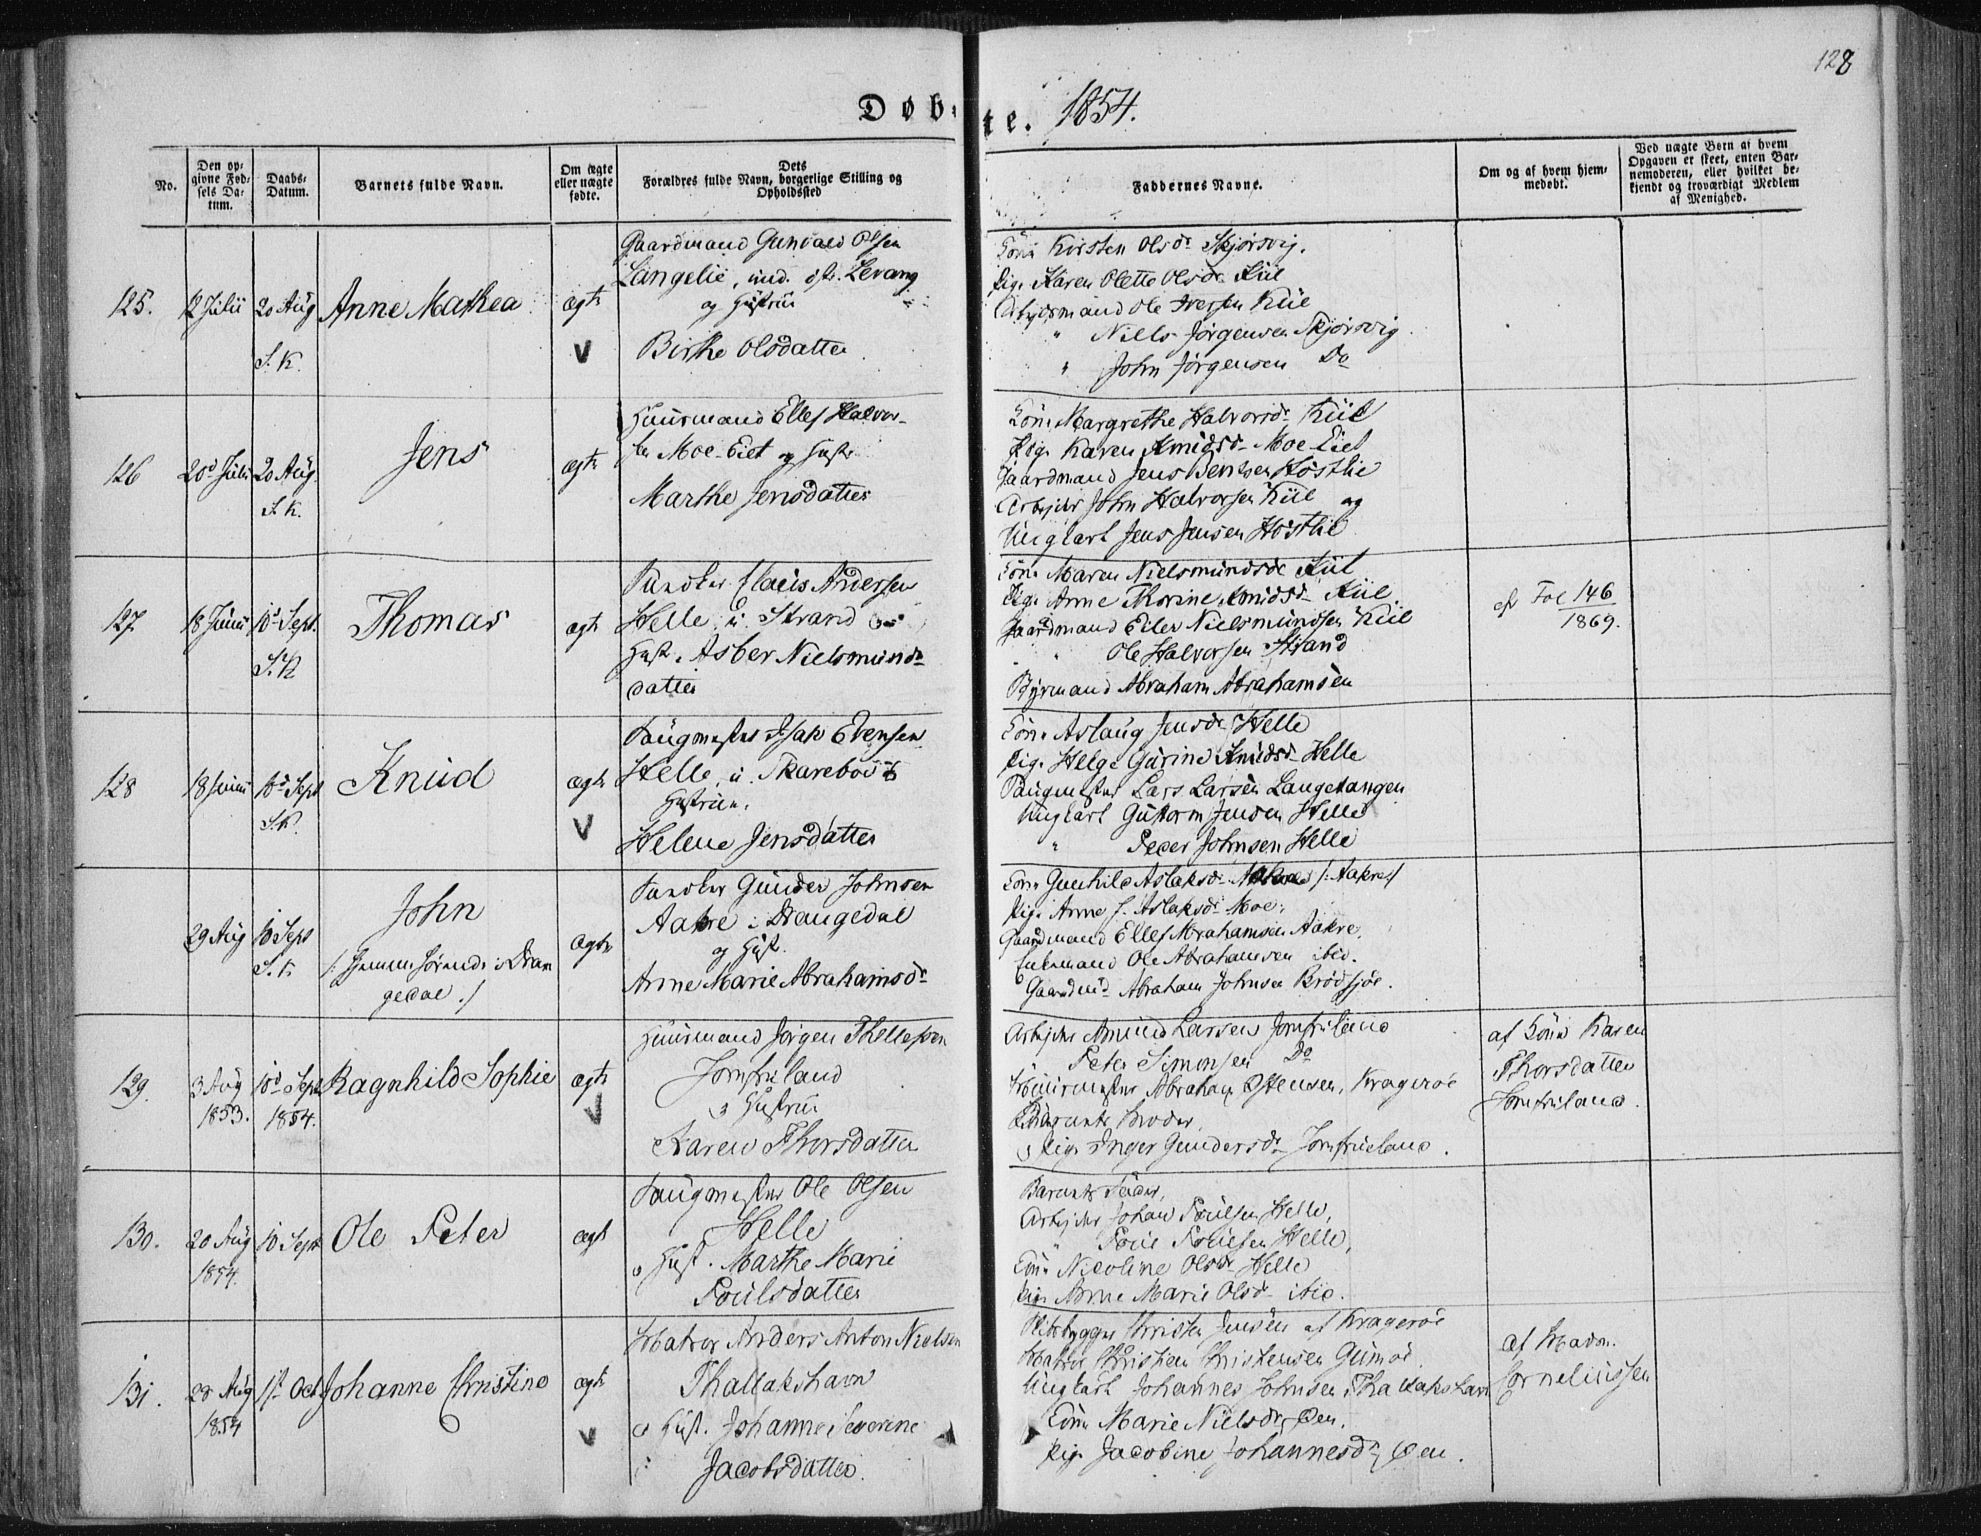 128
Døbte. 1854.
No.
Den opgivne Fødsels Datum.
Daabs-Datum.
Barnets fulde Navn.
Om ægte eller uægte fødte.
Dets Forældres fulde Navn, borgerlige Stilling og Opholdssted
Faddernes Navne.
Om og af hvem hjemmedøbt.
Ved uægte Børn af hvem Opgaven er skeet, enten Barnemoderen, eller hvilket bekjendt og troværdigt Medlem af Menighed.
125. 12 Julii 20 Aug S. K. Anne Mathea ægte V
Gaardmand Gunvald Olsen
Langelie,
og Hustru
Birthe Olsdatter
Kone Kirsten Olsdr Skjørsvig.
Pige Karen Olette Olsdr Kiil
Ole Iversen Kiil
" Niels Jørgensen Skjørsvig
" John Jørgensen Do
126 20d Julii 20 Aug. S. K. Jens ægte
Huusmand Ellef Halvor-
sen Moe-Eiet og Hustr
Marthe Jensdatter
Kone Margrethe Halvorsdr Kiil
Pige Karen Amundsdr Moe-Eiet
Gaardmand Jens Bentsen Høstlie
Arbejder John Halvorsen Kiil og
Ungkarl Jens Jensen Høstlie
127. 18 Junii 10d Sept. S. K Thomas ægte
Claus Andersen
Helle, u. Strand og
Hust. Asber Nielsmunds-
datter
Kone Maren Nielsmundsdr Kiil
Pige Anne Thorine Amundsdr Kiil
Gaardmand Eilev Nielsmundsen Kiil
" Ole Halvorsen Strand
Abraham Abrahamsen
cf Fol 146
1869.
128 18 Junii 10d Sept S. K. Knud ægte V
Saugmester Isak Evensen
Helle, u. Skareboe
Hustrue.
Helene Jensdatter
Kone Aslaug Jensdr Helle
Pige Helge Gurine Knudsdr Helle
Saugmester Lars Larsen Langetangen
Ungkarl Guttorm Jensen Helle
" Peder Johnsen Helle
29 Aug 10 Sept S. K John
/: Hjemmehørende i Dran
gedal :/ ægte
Gunder Johnsen
Aakre i Drangedal
og Hust.
Anne Marie Abrahamsdr
Kone Gunhild Aslaksdr /: Aakre :/
Pige Anne J. Aslaksdr Moe.
Gaardmand Ellef Abrahamsen Aakre.
Enkemand Ole Abrahamsen ibid.
Gaardmd Abraham Johnsen Brødsjøe.
129. 3 Aug 1853. 10d Sept 1854. Ragnhild Sophie ægte V
Huusmand Jørgen Thellefsen
Jomfruland
o Hustru
Karen Thorsdatter
Arbejder Amund Larsen Jomfruland
Peter Simonsen Do
Abraham Ostensen, Kragerøe
Barnets Moder,
o Pige Inger Gundersdr Jomfrueland.
af Kone Karen
Thorsdatter
Jomfruland.
130. 20 Aug 1854. 10 Sept Ole Peter ægte
Saugmester Ole Olsen
Helle
o Hust. Marthe Marie
Poulsdatter
Barnets Fader,
Arbejder Johan Poulsen Helle,
" Poul Poulsen Helle,
Kone Nicoline Olsdr Helle
Pige Anne Marie Olsdr ibid.
131. 29 Aug 1854 1ste Oct Johanne Christine ægte V
Matros Anders Anton Nielsen
Thallakshavn
o Hust. Johanne Severine
Jacobsdatter.
Christen Jensen af Kragerøe
Matros Christen Christensen Gumøe
Ungkarl Johannes Johnsen, Thallakshavn
Kone Marie Nielsdr, Øen.
Pige Jacobine Johannesdr, Øen.
af Madm.
Corneliussen